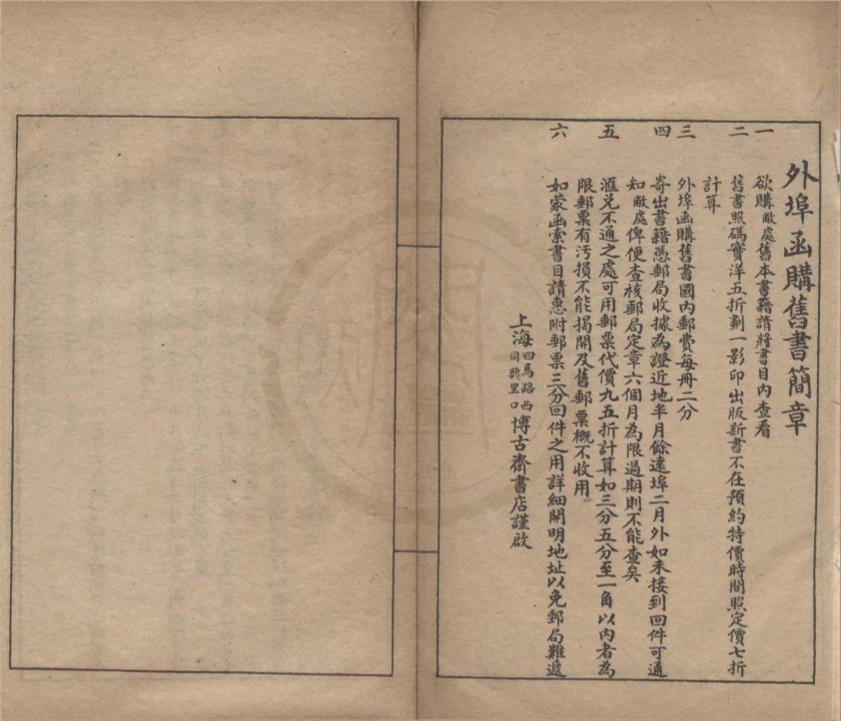 外埠函購舊書簡章
一 欲購敝處舊本書籍請將書目內查看
二 舊書照碼實洋五折劃一影印出版新書不在預約特價時間照定價七折
計算
三 外埠函購舊書國內郵費每冊二分
四 寄出書籍憑郵局收據為證近地半月餘遠埠二月外如未接到回件可通
知敝處俾便查核郵局定章六個月為限過期則不能查矣
五 滙兌不通之處可用郵票代價九五折計算如三分五分至一角以內者為
限郵票有污損不能揭開及舊郵票概不收用
六 如蒙函索書目請惠附郵票三分回件之用詳細開明地址以免郵局難遞
上海四馬路西同興里口博古齋書店謹啟